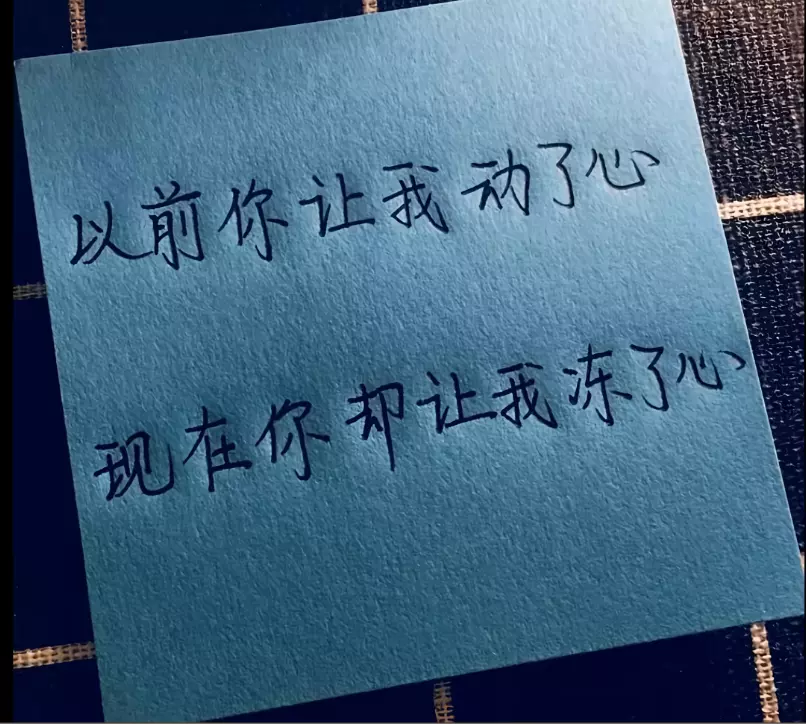 以前你让我动了心
现在你却让我冻了心